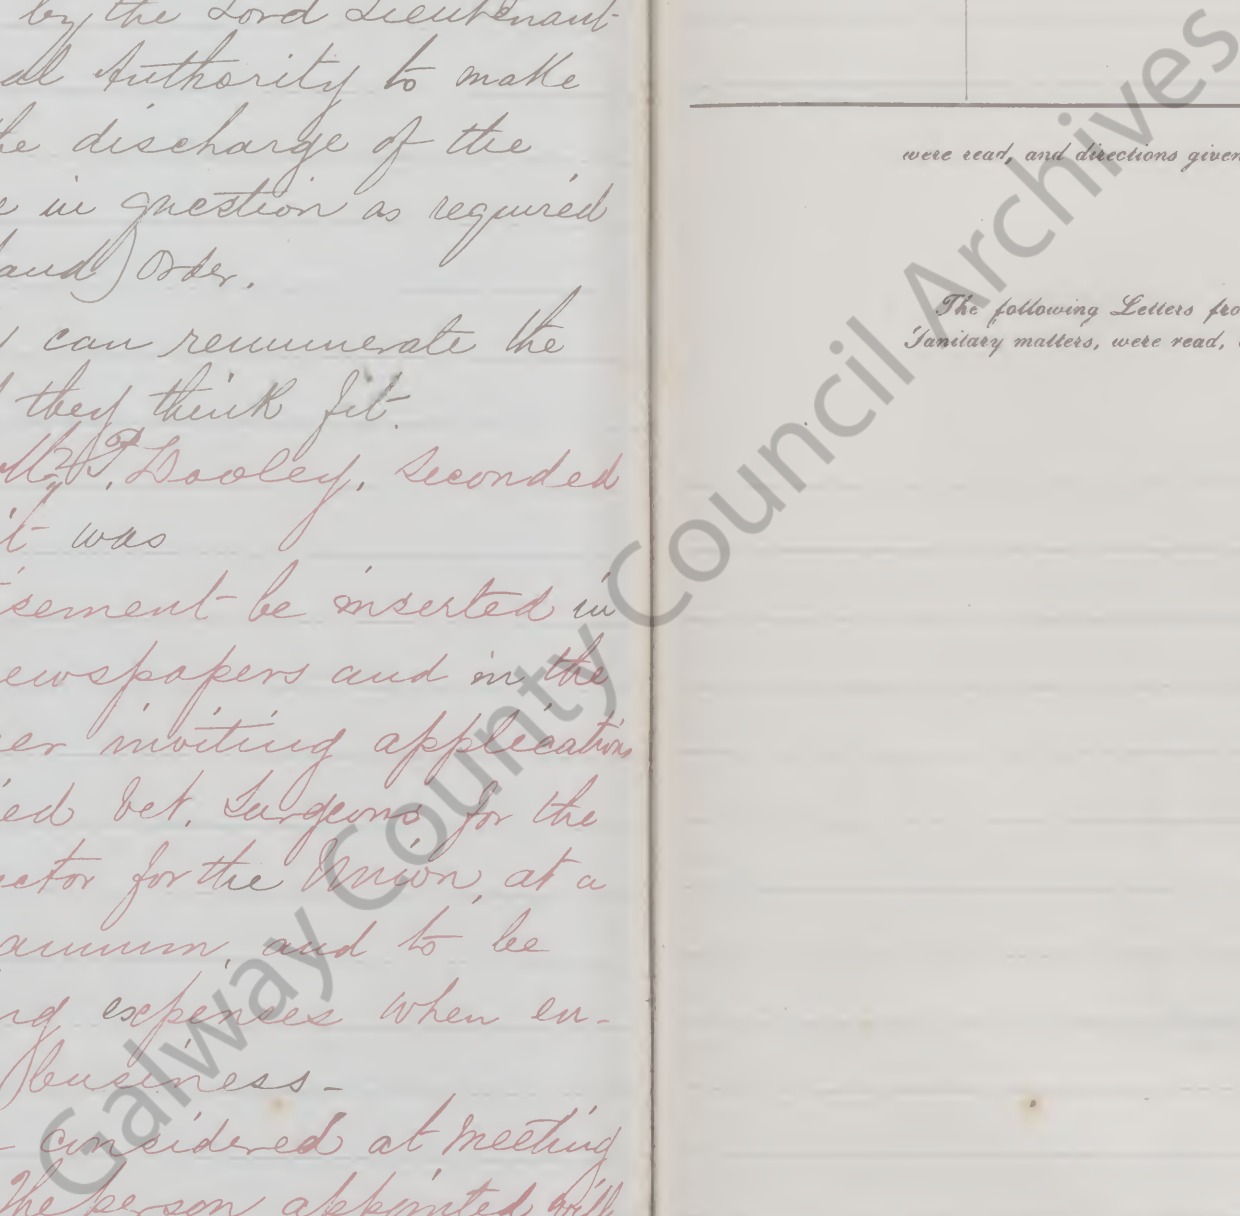 by the Lord Lieutenant
al Authority to make
he discharge of the
e in question as required
land) Order.
can remunerate the
they think fit.
Mr. P. Dooley, seconded
it was
isement be inserted in
ewspapers and in the
er inviting applications
ied Vet. Surgeons for the
ector for the Union, at a
annum, and to be
ng expenses when en-
business-
considered at meeting
The person appointed will
were read, and directions given
The following Letters fro
Sanitary matters, were read,
Galway County Council Archives